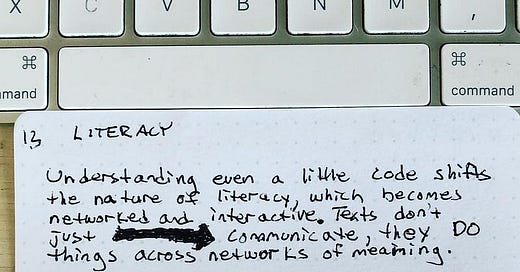 X C V B N M ,
⌘ ⌘
mand command
13 LITERACY
Understanding even a little code shifts
the nature of literacy, which becomes
networked and interactive. Texts don't
just communicate, they DO
things across networks of meaning.